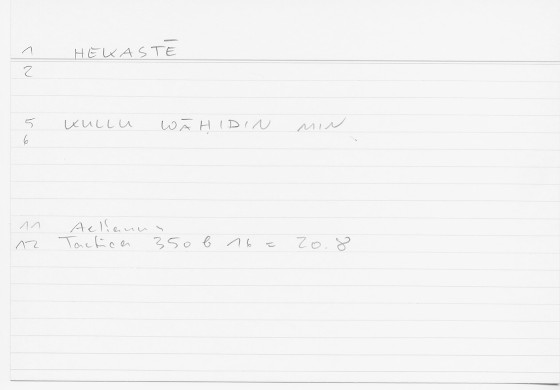 1 HEKASTĒ
2
5 KULLU WĀḤIDIN MIN
6
11 Aelianus
12 Tactica 350 b 16 = 20.8